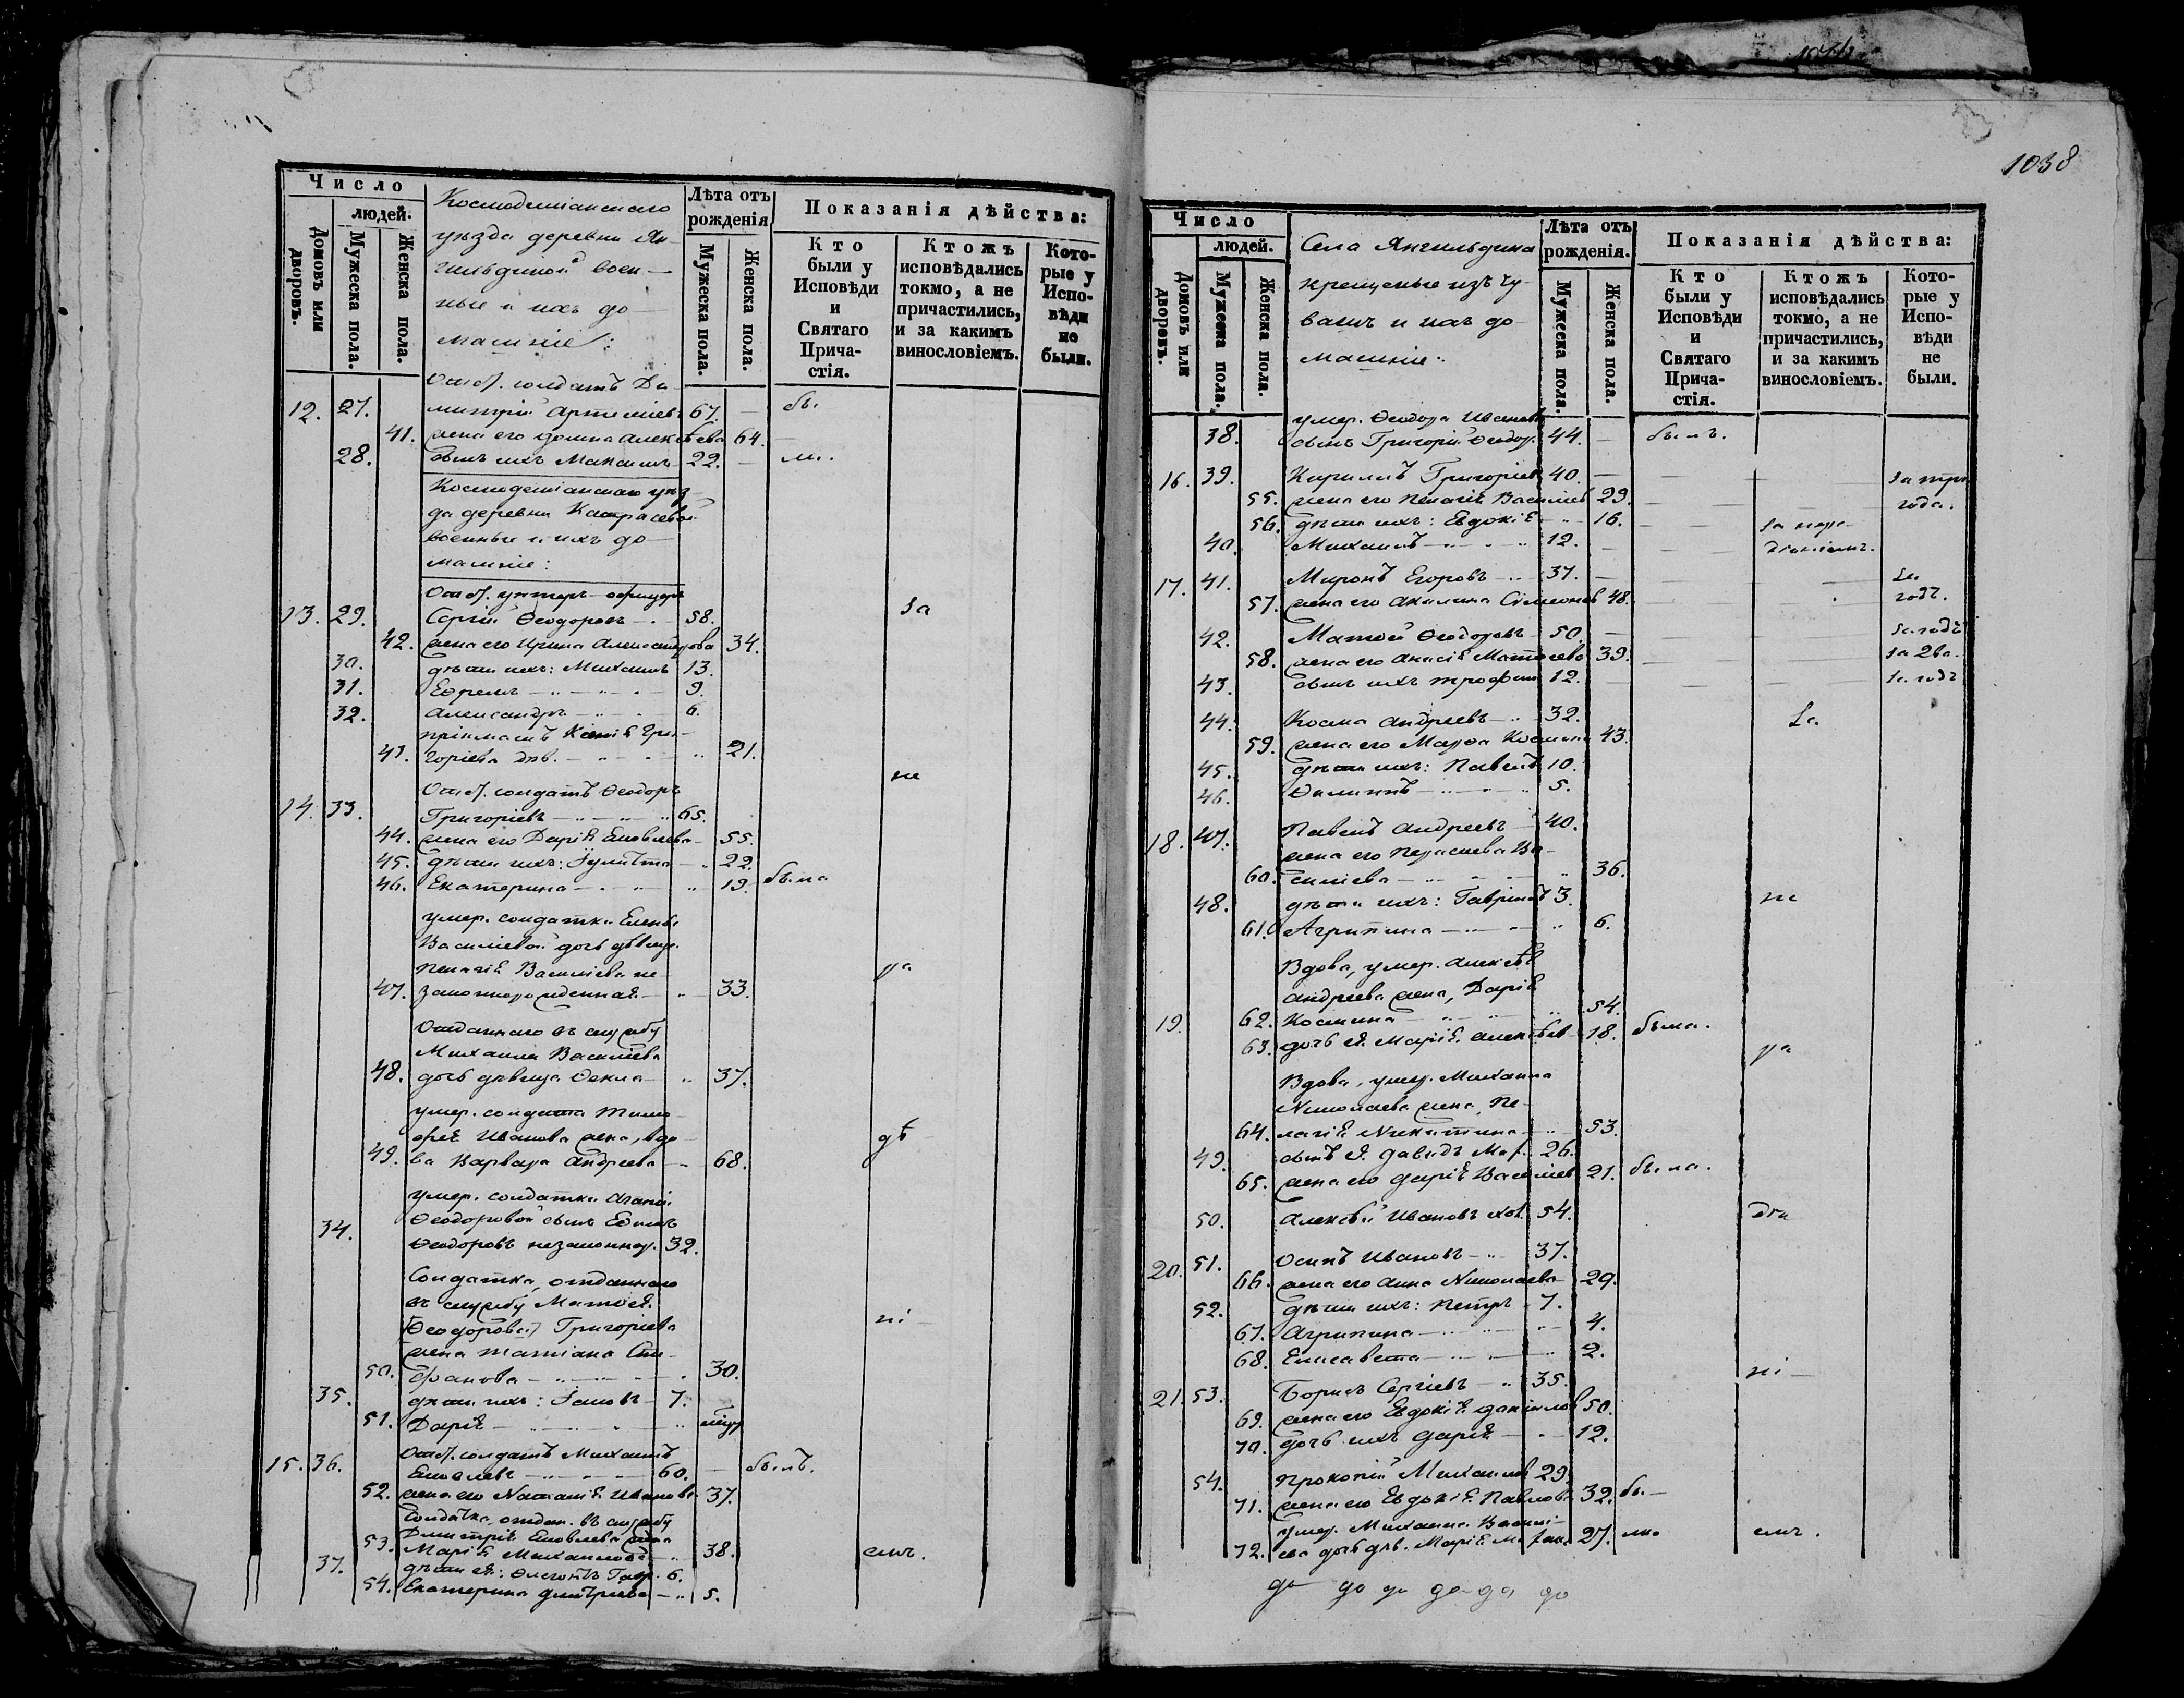 Число
людей.
Домовъ или дворовъ.
Мужеска пола.
Женска пола.
Космодемiанскаго
уѣзда деревни Ян-
гильдиной воен-
ные и ихъ до-
машнiе:
Лѣта отъ рожденiя
Мужеска пола.
Женска пола.
Показанiя дѣйства:
Кто были у Исповѣди и Святаго Прича- стiя.
Ктожъ исповѣдались токмо, а не причастились, и за какимъ винословiемъ.
Кото- рые у Испо- вѣди не были.
Отст. солдатъ Ди-
12. 27. митрiй Артемiевъ 67. — бы
41. жена его Домна Алексѣева 64. —
28. сынъ ихъ Максимъ 22. — ли.
Космодемiанскаго уѣз-
да деревни
военные и ихъ до-
машнiе:
Отст. унтеръ-офицеръ
13. 29. Сергiй Ѳеодоровъ 58. За
42. жена его Ирина Александрова 34.
30. дѣти ихъ: Михаилъ 13.
31. Ефремъ 9.
32. Александръ 6.
Гри-
43. горiева дѣв. 21.
не
Отст. солдатъ Ѳеодоръ
14. 33. Григорiевъ 65.
44. жена его Дарiя Яковлева 55.
45. дѣти ихъ: Iулитта 22.
46. Екатерина 19. была
умер. солдатки Елены
Василiевой дочь дѣвица
Пелагiя Василiева не-
ра
47. законнорожденная 33.
Отданнаго въ службу
Михаила Василiева
48. дочь дѣвица Ѳекла 37.
умер. солдата Тимо-
ѳея Иванова жена, вдо-
дѣ
49. ва Варвара Андреева 68.
умер. солдатки Агапiи
34. Ѳеодоровой сынъ
Ѳеодоровъ незаконнор. 32.
Солдатка, отданнаго
въ службу Матѳея
(Ѳеодорова) Григорiева
нi-
жена Татiана Сте-
50. фанова 30.
35. дѣти ихъ: Iаковъ 7.
51. Дарiя
Отст. солдатъ Михаилъ
15. 36. Яковлевъ 60. — былъ.
52. жена его Наталiя Иванова 37.
Солдатка, отдан. въ службу
Дмитрiя Яковлева жена
53. Марiя Михаилова 38.
емъ.
37. дѣти ея: 6.
54. Екатерина Дмитрiева 5.
1038
Число
людей.
Домовъ или дворовъ.
Мужеска пола.
Женска пола.
Села Янгильдина
крещеные изъ Чу-
вашъ и ихъ до-
машнiе:
Лѣта отъ рожденiя.
Мужеска пола.
Женска пола.
Показанiя дѣйства:
Кто были у Исповѣди и Святаго Прича- стiя.
Ктожъ исповѣдались токмо, а не причастились, и за какимъ винословiемъ.
Кото- рые у Испо- вѣди не были.
умер. Ѳеодора Иванова
38. сынъ Григорiй Ѳеодор. 44. — былъ.
16. 39. Кириллъ Григорiевъ 40. — За три
55. жена его Пелагiя Василiев 29. года.
56. дѣти ихъ: Евдокiя 16. За нера-
40. Михаилъ 12. — дѣнiемъ.
17. 41. Миронъ Егоровъ 37. — За
57. жена его Акилина Сiмеонов 48. годъ.
42. Матѳей Ѳеодоровъ 50. — За годъ
58. жена его Матѳеева 39. За два.
43. сынъ ихъ Трофим 12. — За годъ
44. Косма Андреевъ 32. За
59. жена его Марѳа Космина 43.
45. дѣти ихъ: Павелъ 10.
46. Филиппъ 5.
18. 47. Павелъ Андреевъ 40.
жена его Ва-
60. силiева 36.
48. дѣти ихъ: Гаврiилъ 3. не
61. Агрипина 6.
Вдова, умер. Алексѣя
Андреева жена, Дарiя
19. 62. Космина 54.
63. дочь ея Марiя Алексѣев 18. была.
ра
Вдова, умер. Михаила
Николаева жена, Пе-
64. лагiя Никитина 53.
49. сынъ ея Давидъ 26.
65. жена его Дарiя Василiев 21. была.
50. Алексѣй Ивановъ хол. 54. дѣ
20. 51. Осипъ Ивановъ 37.
66. жена его Анна Николаева 29.
52. дѣти ихъ: Петръ 7.
67. Агрипина 4.
68. Елисавета 2.
нi-
21. 53. Борисъ Сергiевъ 35.
69. жена его Евдокiя Данiилов 50.
70. дочь ихъ Дарiя 12.
54. Прокопiй Михаилов 29.
71. жена его Евдокiя Павлова 32. бы-
умер. Михаила Васили-
72. ева дочь дѣв. Марiя 27. ли. емъ.